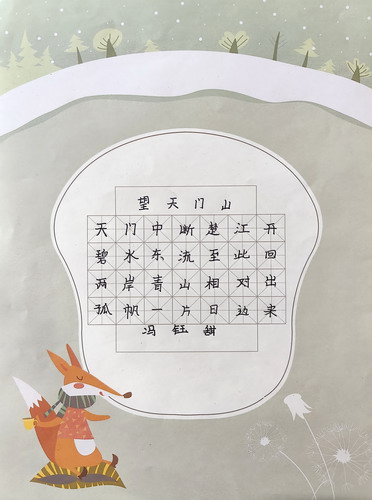 望天门山
天门中断楚江开
碧水东流至此回
两岸青山相对出
孤帆一片日边来
冯钰甜